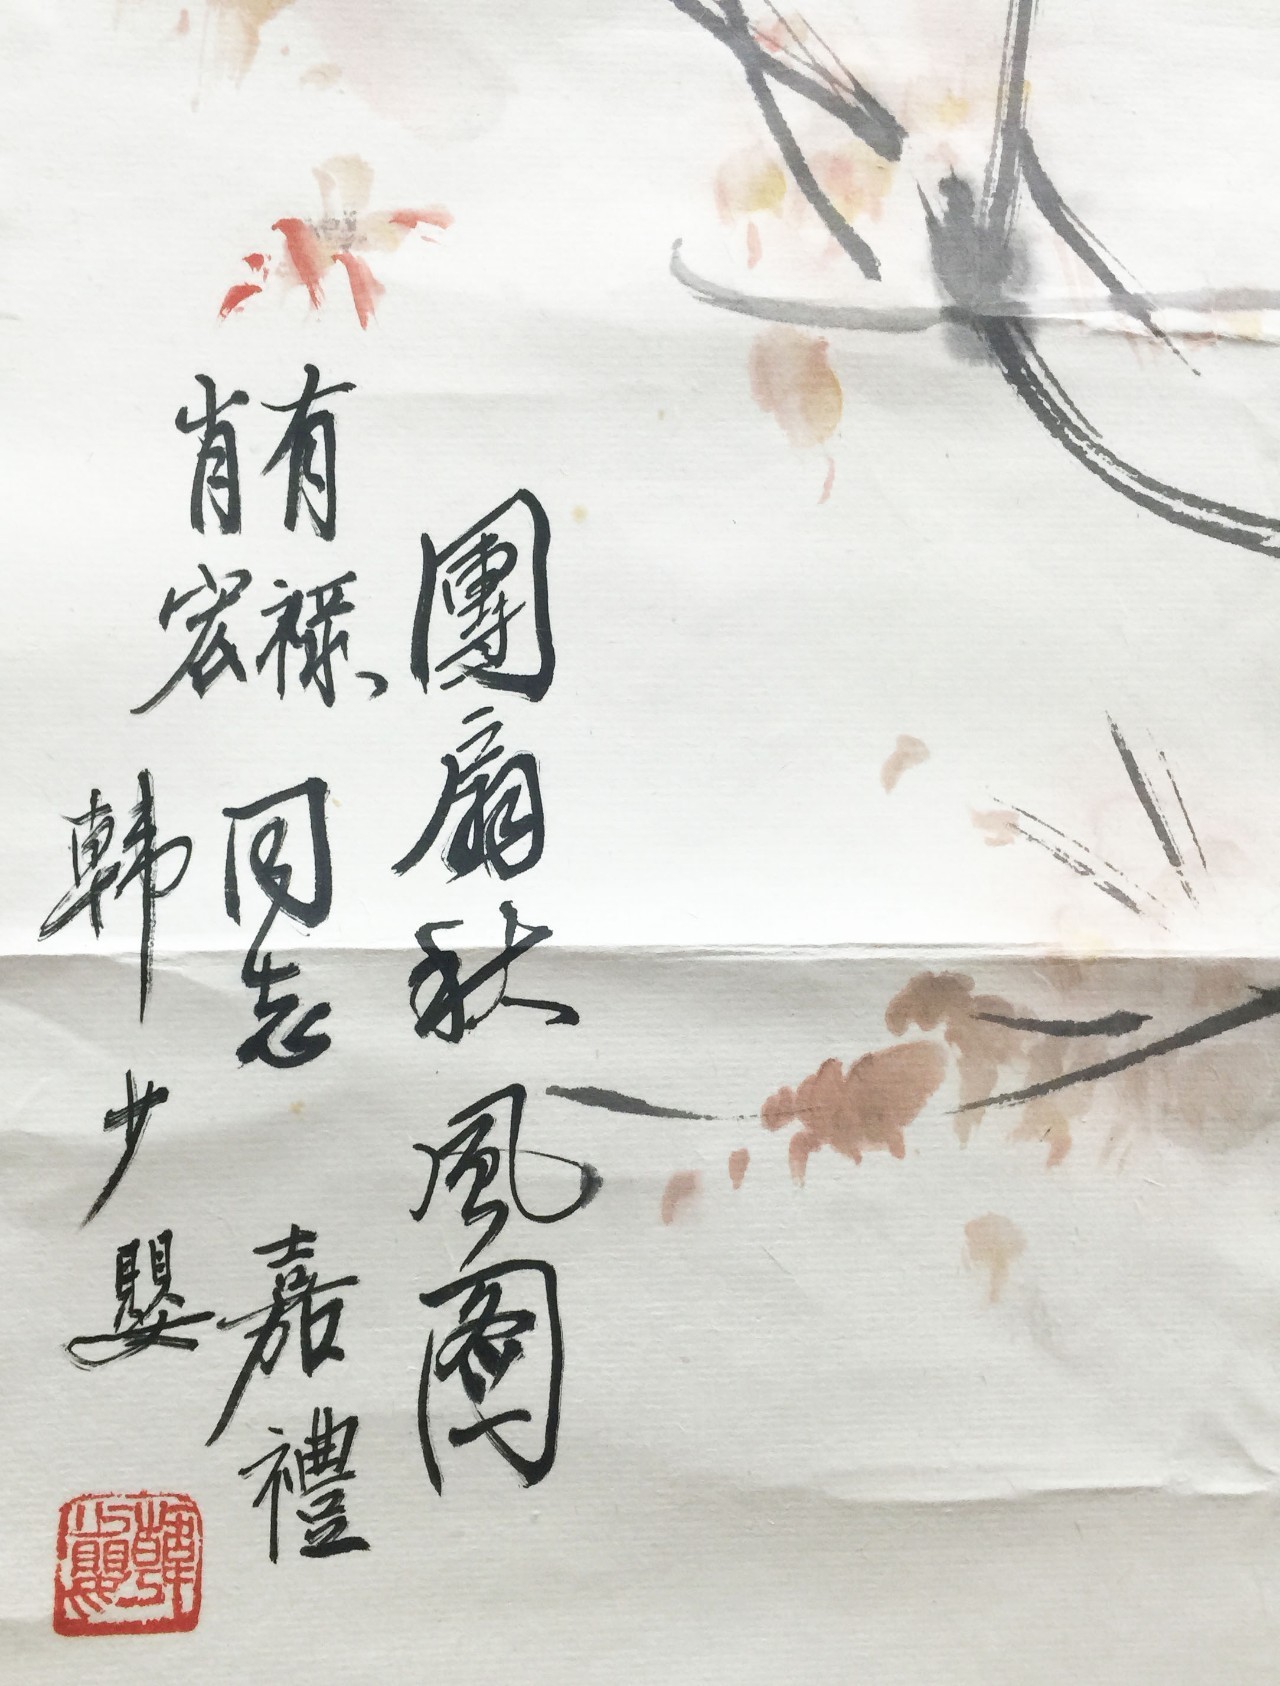 團扇秋風圖
有禄
肖宏
同志
嘉禮
韓少嬰
韓少嬰